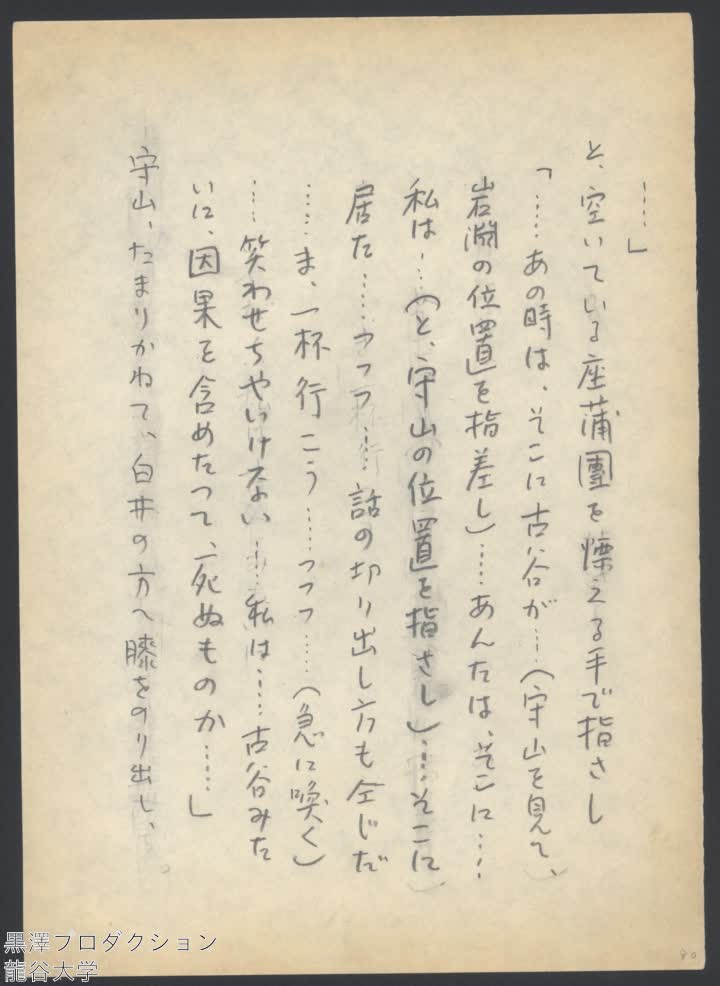 ……」
と、空いている座蒲團を慄える手で指さし
「……あの時は、そこに古谷が…（守山を見て、
岩淵の位置を指差し）……あんたは、そこに……
私は……（と、守山の位置を指さし）……そこに
居た……つつつ……話の切り出し方も仝じだ
……ま、一杯行こう……つつつ……（急に喚く）
……笑わせちやいけない……私は……古谷みた
いに、因果を含めたつて、死ぬものか……」
守山、たまりかねて、白井の方へ膝をのり出し、
80
黒澤プロダクション
龍谷大学